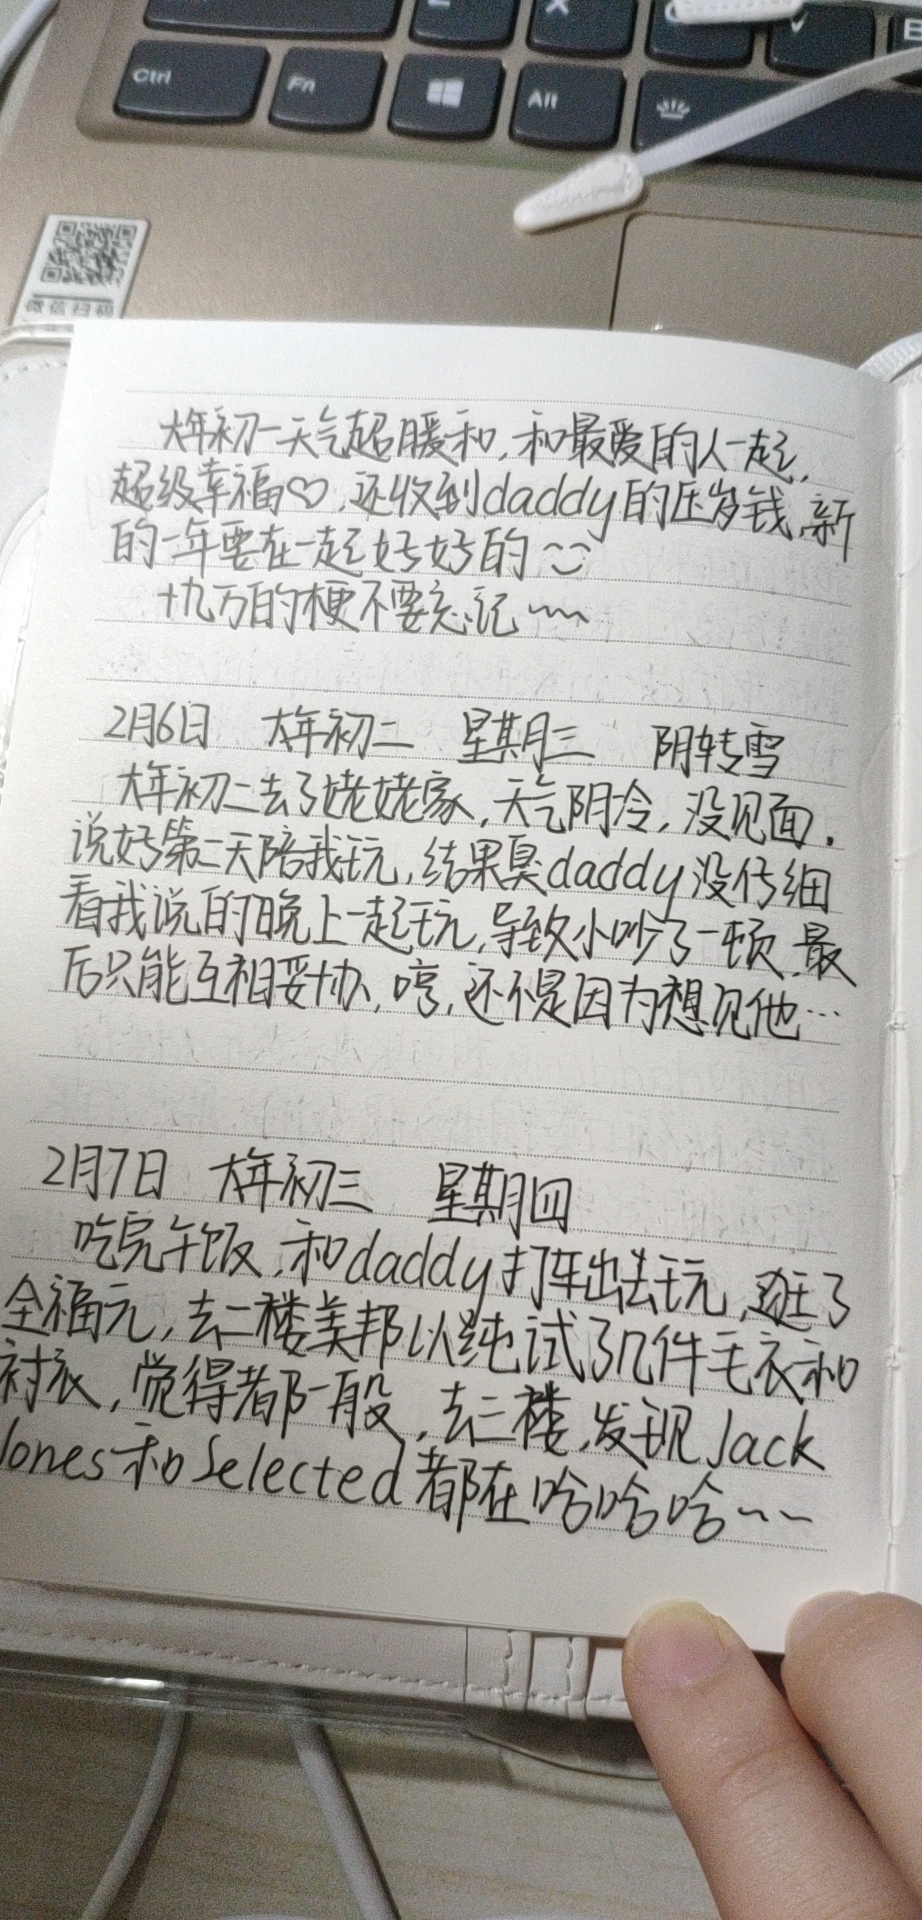 Ctrl
Fn
Alt
微信扫码
大年初一天气超暖和，和最爱的人一起，
超级幸福♡，还收到daddy的压岁钱，新
的一年要在一起好好的
十九万的梗不要忘记~~
2月6日 大年初二 星期三 阴转雪
大年初二去了姥姥家，天气阴冷，没见面。
说好第二天陪我玩，结果臭daddy没仔细
看我说的晚上一起玩，导致小吵了一顿，最
后只能互相妥协，哼，还不是因为想见他…
2月7日 大年初三 星期四
吃完午饭，和daddy打车出去玩，逛了
全福元，去二楼美邦以纯试了几件毛衣和
衬衣，觉得都一般，去三楼，发现Jack
Jones和Selected都在哈哈哈~~